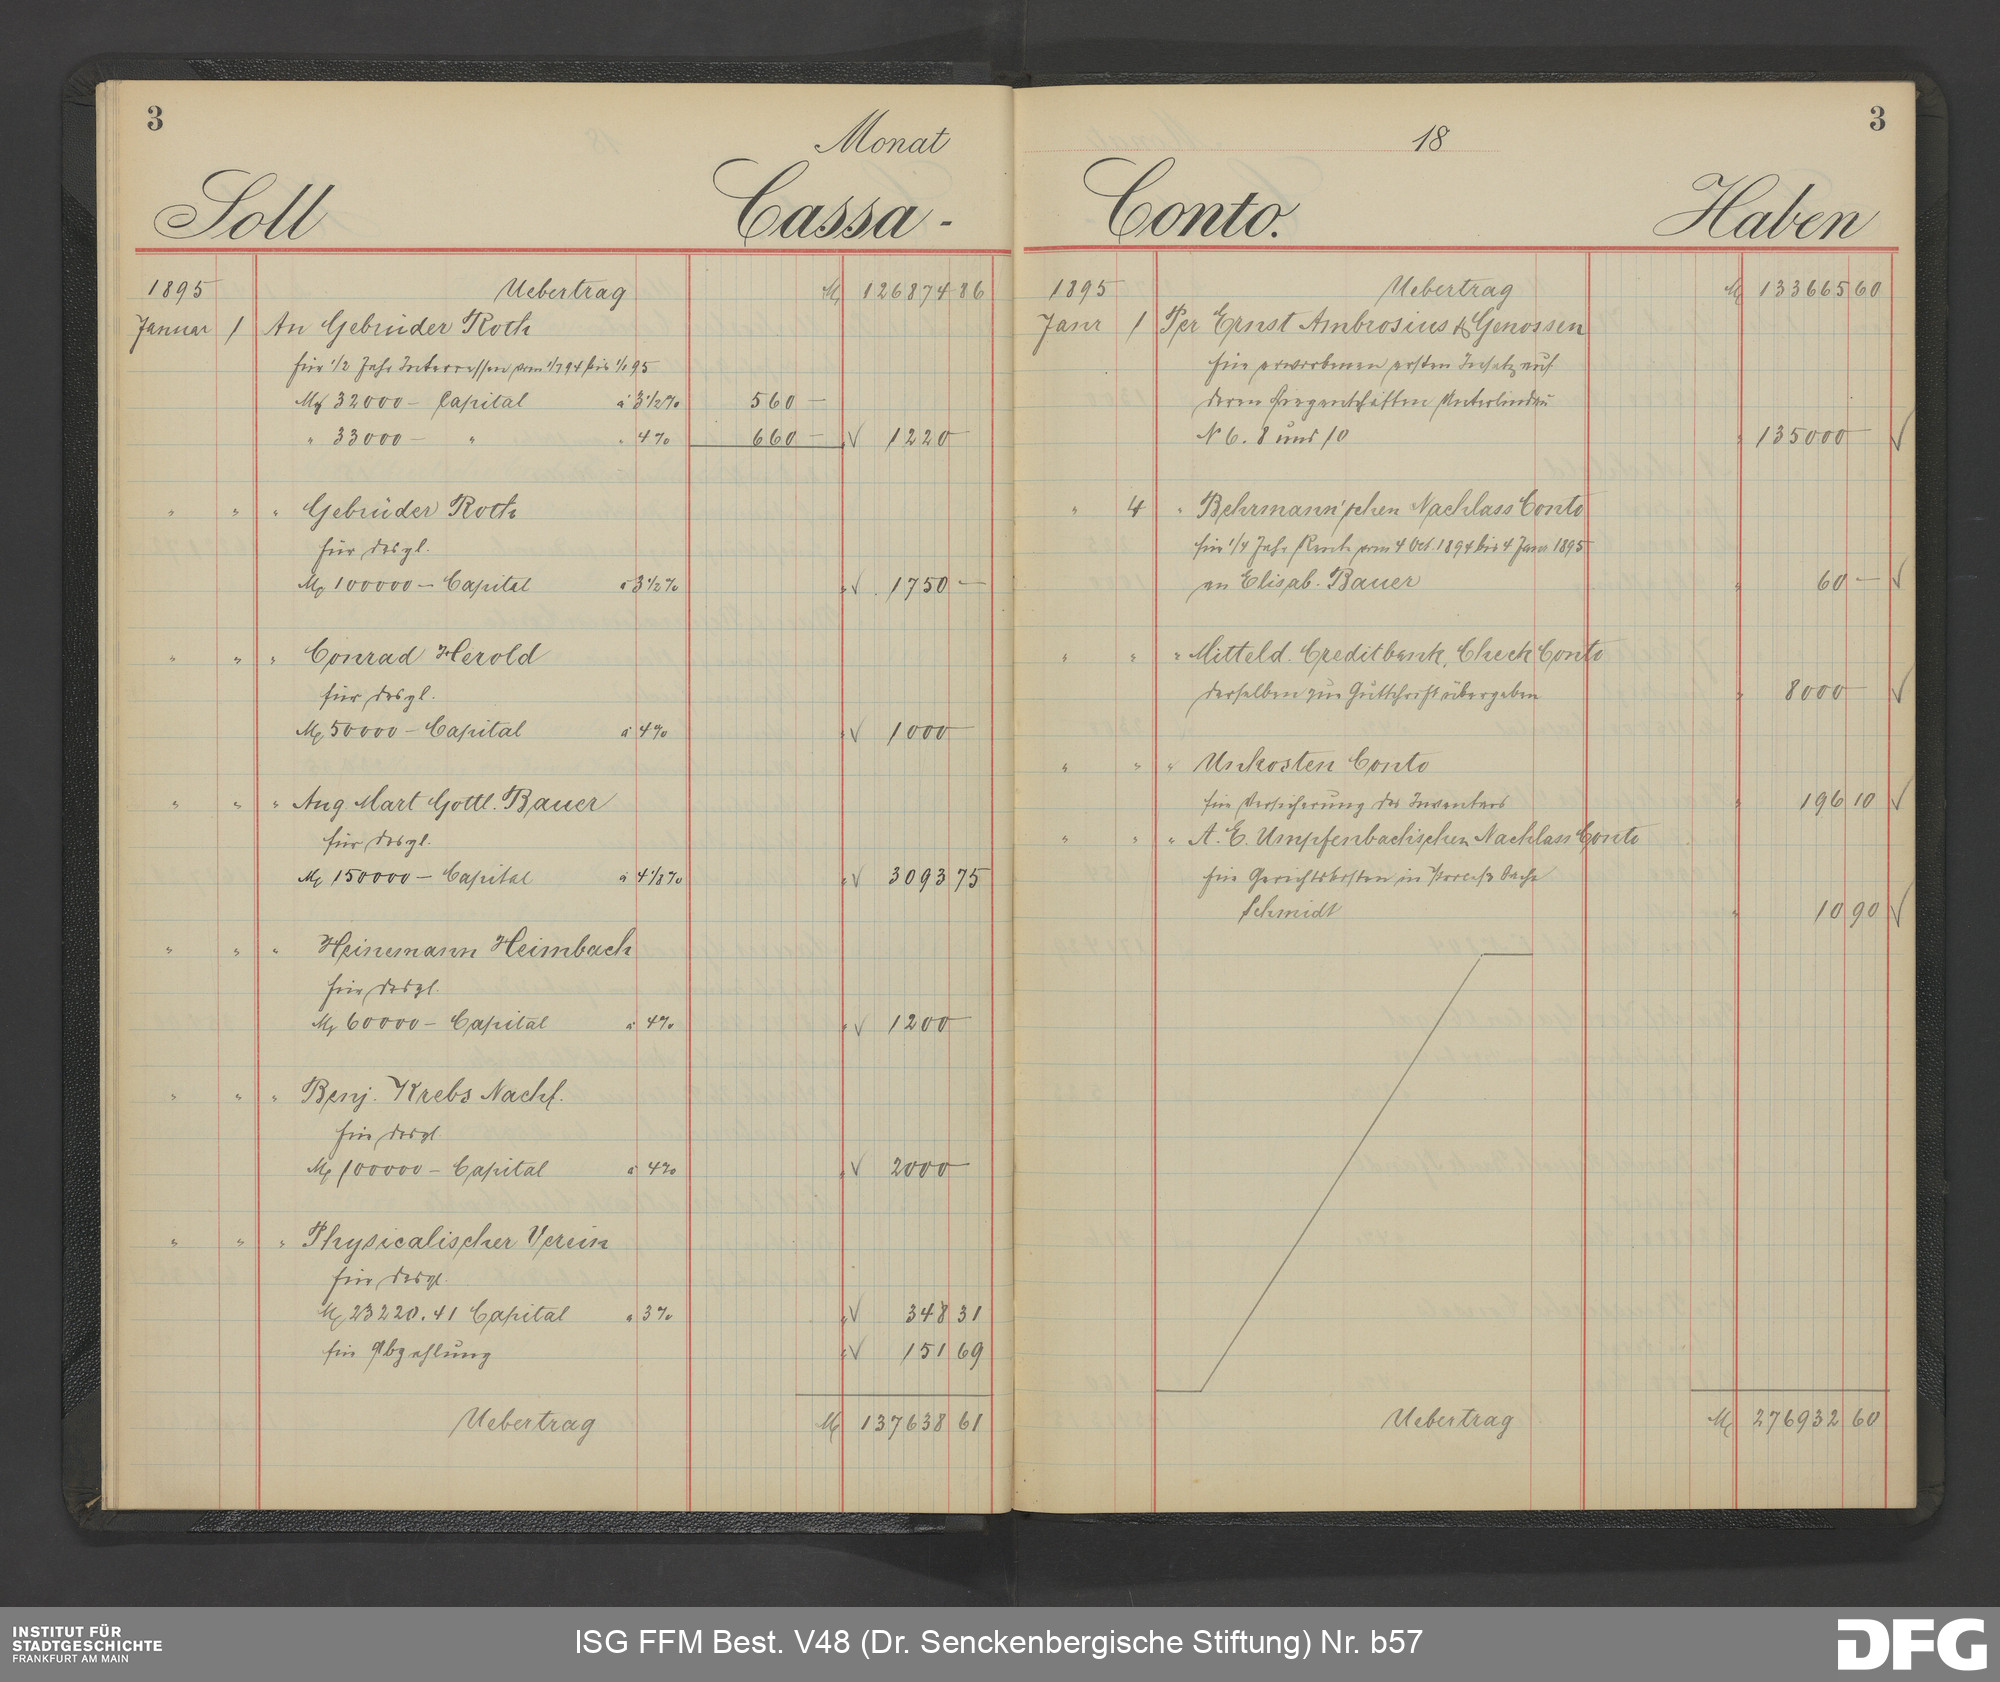 3
Monat
Soll
Cassa-
1895
Uebertrag
M 126874 86
Januar 1 An Gebrüder Roth
für 1/2 Jahr Interessen vom 1/7 94 bis 1/1 95
M 32000 – Capital à 3 1/2 % 560 –
" 33000 – " " 4 % 660 – " 1220 –
" " " Gebrüder Roth
für desgl.
M 100000 – Capital à 3 1/2 % " 1750 –
" " " Conrad Herold
für desgl.
M 50000 – Capital à 4 % " 1000 –
" " " Aug. Mart Gottl. Bauer
für desgl.
M 150000 – Capital à 4 1/8 % " 3093 75
" " " Heinemann Heimbach
für desgl.
M 60000 – Capital à 4 % " 1200 –
" " " Benj. Krebs Nachf.
für desgl
M 100000 – Capital à 4 % " 2000 –
" " " Physicalischer Verein
für desgl.
M 23220.41 Capital à 3 % " 348 31
für Abzahlung " 151 69
Uebertrag M 137638 61
18
3
Conto.
Haben
1895
Uebertrag
M 133665 60
Janr 1 Per Ernst Ambrosius & Genossen
für erworbenen ersten Insatz auf
deren Liegenschaften Unterlindau
N 6. 8 und 10 " 135000 –
" 4 " Behrmann'schen Nachlass Conto
für 1/4 Jahr Rente vom 4 Oct. 1894 bis 4 Janr 1895
an Elisab. Bauer " 60 –
" " " Mitteld. Creditbank, Check Conto
derselben zur Gutschrift übergeben " 8000 –
" " " Unkosten Conto
für Versicherung des Inventars " 196 10
" " " A. E. Umpfenbachischen Nachlass Conto
für Gerichtskosten in Process Sache
Schmidt " 10 90
Uebertrag M 276932 60
INSTITUT FÜR
STADTGESCHICHTE
FRANKFURT AM MAIN
ISG FFM Best. V48 (Dr. Senckenbergische Stiftung) Nr. b57
DFG